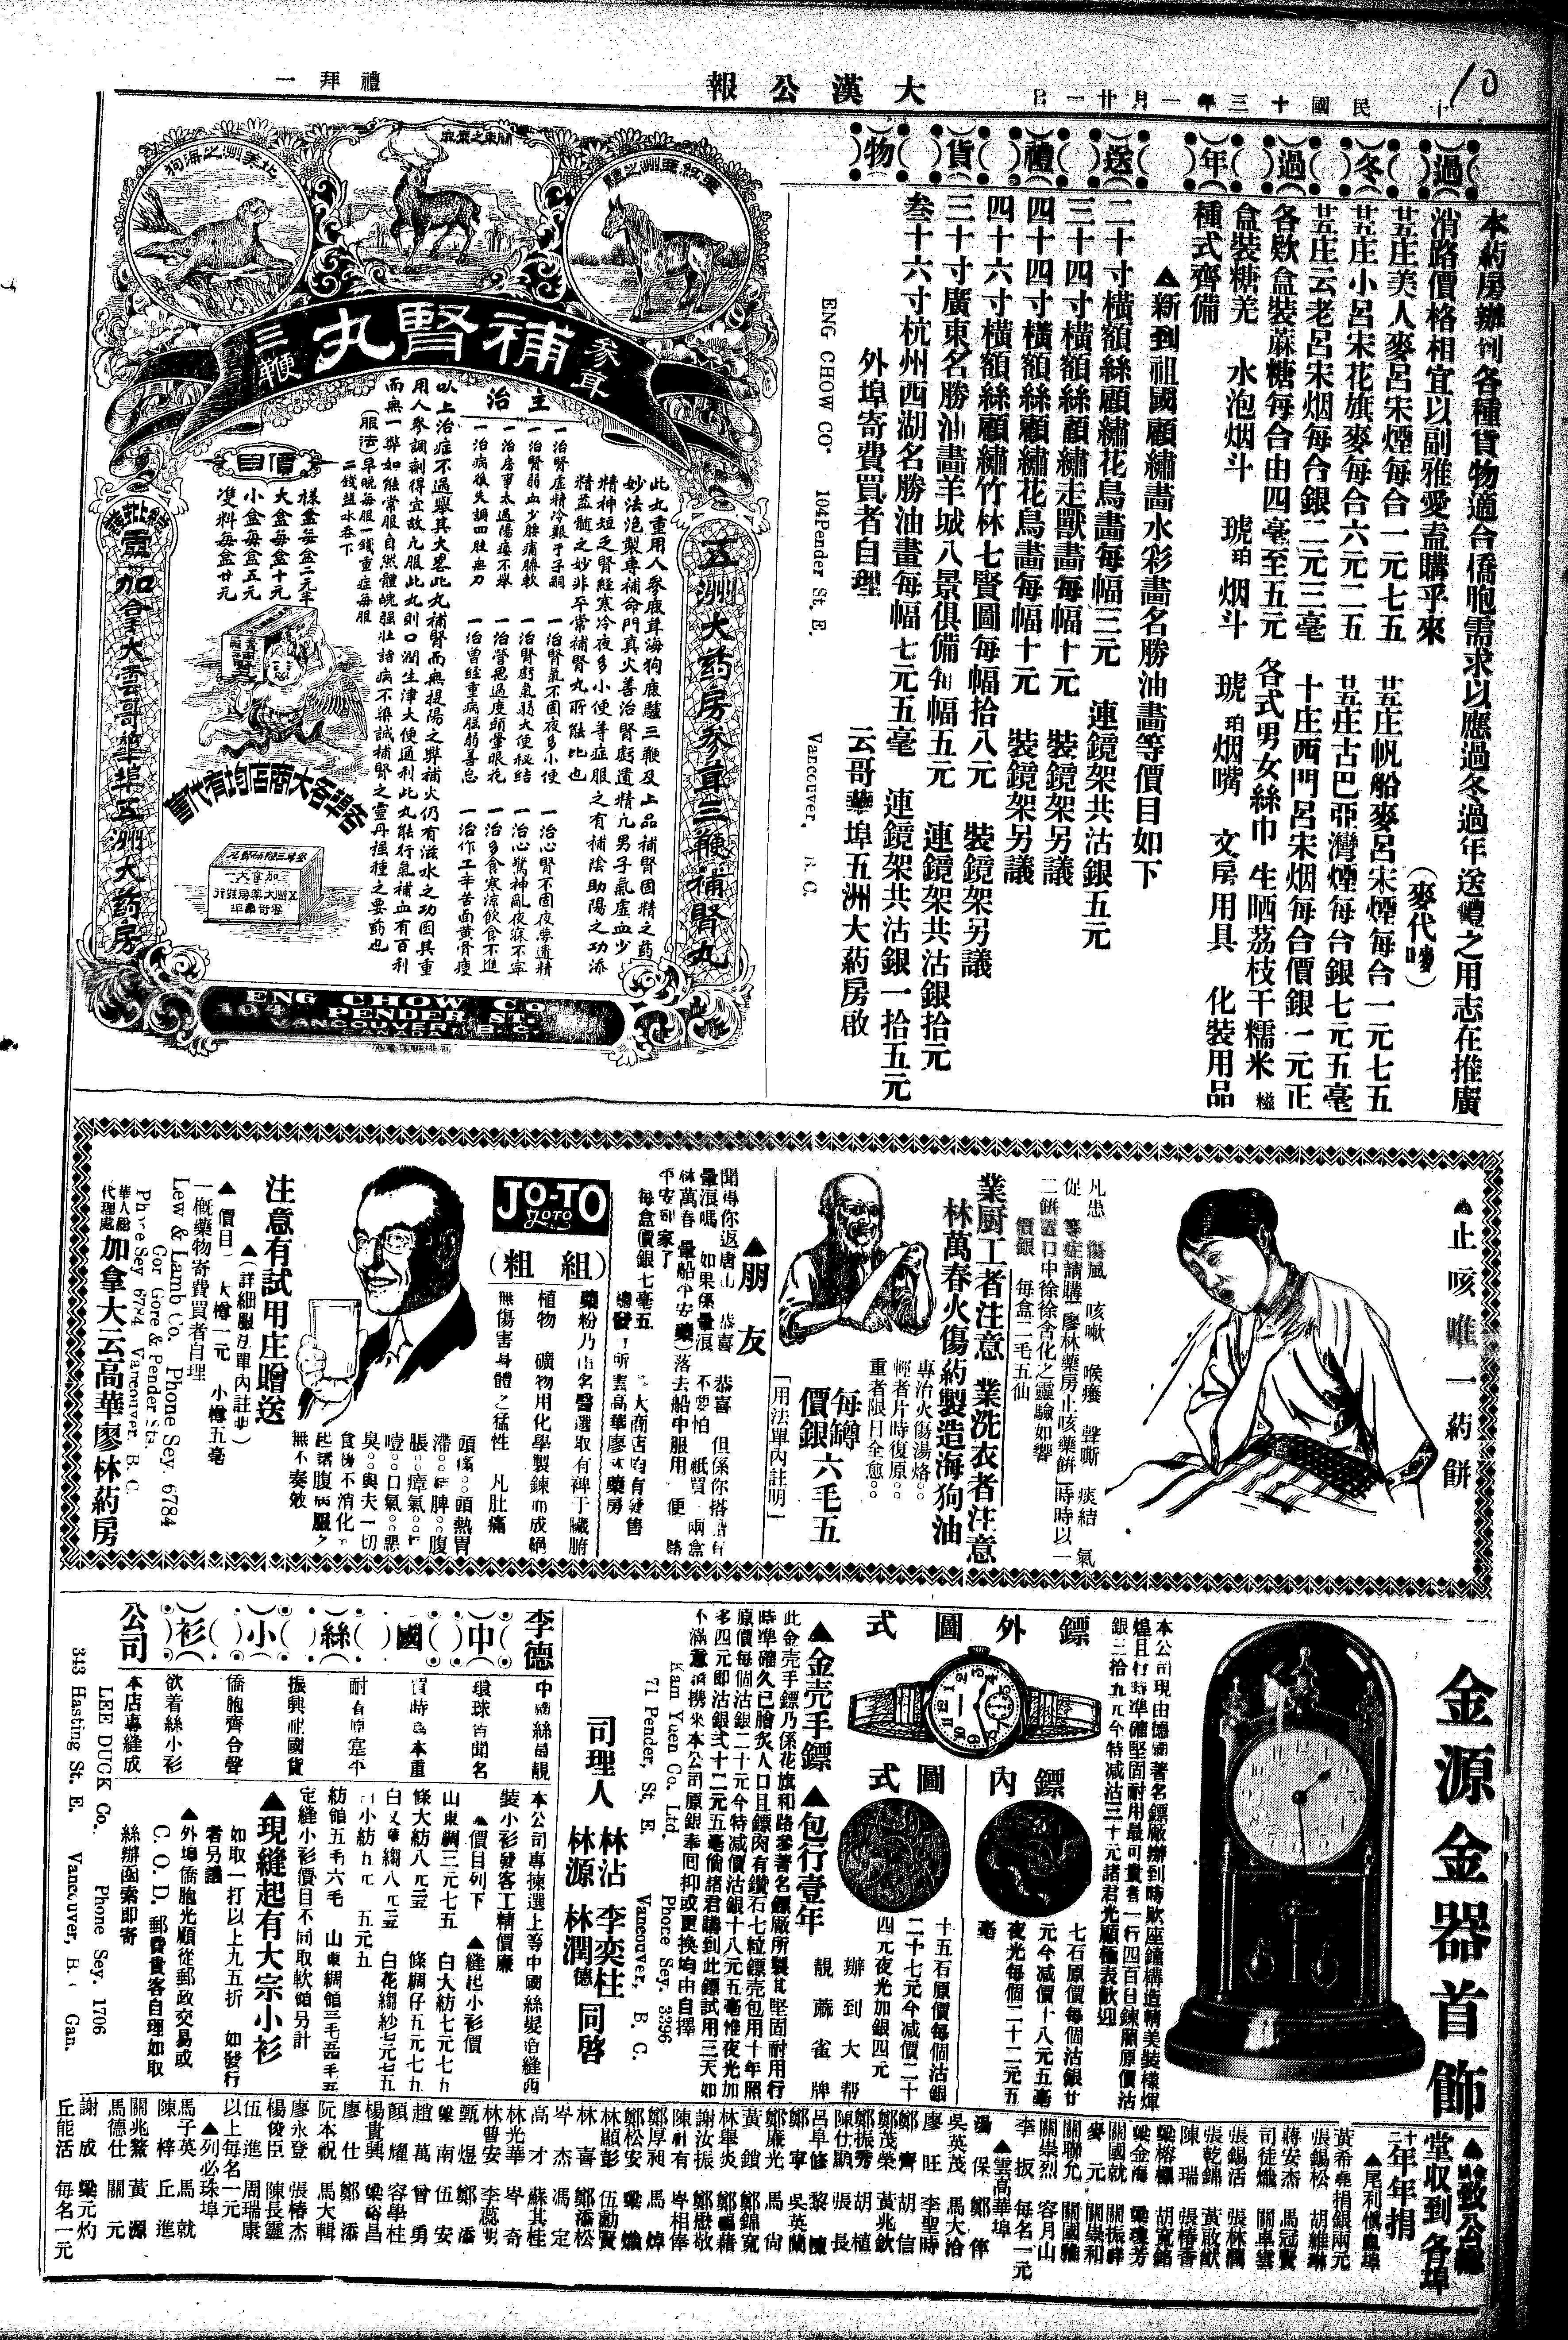 十 民國十三年一月廿一日
大漢公報
禮拜一
10
過冬過年送禮貨物
本葯房辦到各種貨物適合僑胞需求以應過冬過年送禮之用志在推廣
消路價格相宜以副雅愛盍購乎來
廿五庄美人麥呂宋煙每合一元七五
廿五庄小呂宋花旗麥每合六元二五
廿五庄云老呂宋烟每合銀二元三毫
各欵盒裝蔴糖每合由四毫至五元
盒裝糖羌 水泡烟斗 琥珀烟斗 琥珀烟嘴 文房用具 化裝用品
種式齊備
(麥代嘜)
廿五庄帆船麥呂宋煙每合一元七五
廿五庄古巴亞灣煙每合銀七元五毫
十庄西門呂宋烟每合價銀一元正
各式男女絲巾 生晒荔枝干糯米糍
▲新到祖國顧繡畫水彩畫名勝油畫等價目如下
二十寸橫額絲顧繡花鳥畫每幅三元 連鏡架共沽銀五元
三十四寸橫額絲顧繡走獸畫每幅十元 裝鏡架另議
四十四寸橫額絲顧繡花鳥畫每幅十元 裝鏡架另議
四十六寸橫額絲顧繡竹林七賢圖每幅拾八元 裝鏡架另議
三十寸廣東名勝油畫羊城八景俱備每幅五元 連鏡架共沽銀拾元
叁十六寸杭州西湖名勝油畫每幅七元五毫 連鏡架共沽銀一拾五元
外埠寄費買者自理 云哥華埠五洲大葯房啟
ENG CHOW CO. 104 Pender St. E. Vancouver, B. C.
北美洲之海狗
關東之麋鹿
亞細亞洲之驢
參茸補腎丸三鞭
五洲大葯房參茸三鞭補腎丸
總發行上架
加拿大雲哥華埠五洲大葯房
此丸重用人參鹿茸海狗鹿驢三鞭及上品補腎固精之葯
妙法泡製專補命門真火善治腎虧遺精凡男子氣虛血少
精神短乏腎經寒冷夜多小便等症服之有補陰助陽之功添
精益髓之妙非平常補腎丸所能比也
主治
一治腎虛精冷艱于子嗣 一治腎氣不固夜多小便 一治心腎不固夜夢遺精
一治腎弱血少腰痛脚軟 一治腎虧氣弱大便秘結 一治心驚神亂夜寐不寧
一治房事太過陽痿不舉 一治營思過度頭暈眼花 一治多食寒涼飲食不進
一治病後失調四肢無力 一治曾經重病胘弱善忘 一治作工辛苦面黃骨瘦
以上治症不過舉其大畧此丸補腎而無提陽之弊補火仍有滋水之功因其重
用人參調劑得宜故凡服此丸則口潤生津大便通利此丸能行氣補血有百利
而無一弊如能常服自然體魄强壯諸病不染誠補腎之靈丹强種之要葯也
(服法)早晚每服一錢重症每服
二錢鹽水吞下
價目
樣盒每盒二元半
大盒每盒十元
小盒每盒五元
双料每盒廿元
各埠各大商店均有代售
ENG CHOW CO.
104 PENDER ST. E.
VANCOUVER, B.C.
CANADA
▲止咳唯一葯餅
凡患 傷風 咳嗽 喉癢 聲嘶 痰結 氣
促 等症請購「廖林藥房止咳藥餅」時時以一
二餅置口中徐徐含化之靈驗如響
價銀 每盒二毛五仙
業厨工者注意 業洗衣者注意
林萬春火傷葯製造海狗油
專治火傷湯烙○○
輕者片時復原○○
重者限日全愈○○
每罇價銀六毛五
「用法單內註明」
▲朋友
聞得你返唐山 恭喜 恭喜 但係你搭船有
暈浪嗎 如果係暈浪 不要怕 祗買一兩盒
林萬春(暈船平安藥)落去船中服用 便一路
平安到家了
每盒價銀七毫五
JO-TO
JOTO
(粗組)
藥粉乃由名醫選取有裨于臟腑
植物 礦物用化學製鍊而成絕
無傷害身體之猛性 凡肚痛
頭痛○○頭熱胃
滯○○脾○○腹
脹○○瘴氣○○
噎○○口氣○○惡
臭○○與夫一切
食後不消化
起諸腹病服之
無不奏效
注意有試用庄贈送
▲(詳細服法單內註明)
▲價目 大罇一元 小罇五毫
一概藥物寄費買者自理
Lew & Lamb Co. Phone Sey. 6784
Cor Gore & Pender Sts.
Phone Sey 6784 Vancouver. B. C.
華人總代理處 加拿大云高華廖林葯房
金源金器首飾
本公司現由德國著名鏢廠辦到時欵座鐘構造精美裝樣輝
煌且行時準確堅固耐用最可貴者一行四百日鍊願原價沽
銀三拾九元今特减沽三十元諸君光顧極表歡迎
鏢外圖式
鏢內圖式
七石原價每個沽銀廿
元今减價十八元五毫
夜光每個二十二元五
毫
十五石原價每個沽銀
二十七元今减價二十
四元夜光加銀四元
辦到大帮
靚蔴雀牌
▲金壳手鏢 ▲包行壹年
此金壳手鏢乃係花旗和路參著名鏢廠所製其堅固耐用行
時準確久已膾炙人口且鏢肉有鑽石七粒鏢壳包用十年照
原價每個沽銀二十元今特减價沽銀十八元五毫惟夜光加
多四元即沽銀弍十二元五毫倘諸君購到此鏢試用三天如
不滿意請携來本公司原銀奉囘抑或更換均由自擇
Kam Yuen Co. Ltd. Phone Sey. 3396
71 Pender, St. E Vancouver, B. C.
司理人 林沾 李奕柱 林源 林潤德 同啓
李德中國絲小衫公司
中國絲最靚
環球皆聞名
買時爲本重
耐有原定平
振興祖國貨
僑胞齊合聲
欲着絲小衫
本店專縫成
本公司專揀選上等中國絲髮造縫西
裝小衫發客工精價廉
▲價目列下 ▲縫起小衫價
山東綢三元七五 白大紡七元七九
條大紡八元五 條綢仔五元七九
白文華縐八元五 白花縐紗七元七五
白小紡九元 五元五
紡領五毛六毛 山東綢領三毛
定縫小衫價目不同取軟領另計
▲現縫起有大宗小衫
如取一打以上九五折 如發行
者另議
▲外埠僑胞光顧從郵政交易或
C. O. D. 郵費貴客自理如取
絲辦函索即寄
LEE DUCK Co. Phone Sey. 1706
343 Hasting St. E. Vancouver, B. C. Can.
▲致公總堂收到各埠
二十年年捐
▲尾利慎血埠
黃希堯捐銀兩元
張錫松 胡維琳
蔣安杰 馬冠賢
司徒熾 關卓雲
張錫活 張林潤
張乾錦 黃啟猷
陳瑞 張椿香
梁榕標 胡寬銘
梁金海 梁瓊芳
關國就 關振祥
麥元 關崇和
關聯允 關國雅
關崇烈 容月山
李扳 每名一元
▲雲高華埠
湯保 鄭倖
吳英茂 馬大洽
廖旺 李聖時
鄭齊 胡信
鄭茂榮 黃兆欽
鄭振秀 胡植
陳仕顯 張長
呂阜修 黎悚
鄭寧 吳英蘭
鄭廉光 馬尙
黃鎖 鄭錦寬
林舉炎 鄭賜藉
謝汝振 鄭懋敬
陳耐有 岑相俸
鄭厚昶 馬焯
鄭松安 梁熾
林顯彭 伍勳賢
林喜 鄭添松
岑杰 馮定
高才 蘇其桂
林光華 岑奇
林普安 李蕊男
甄煜 鄭添
梁南 伍安
趙萬 曾勇
顏耀 容學柱
楊貴興 梁裕昌
廖仕 鄭添
阮本祝 馬大輯
廖永登 張椿杰
楊俊臣 陳長鑾
伍進 周瑞康
以上每名一元
▲列必珠埠
馬子英 馬就
陳梓 丘進
關兆鰲 黃源
馬德仕 關元
謝成 梁元灼
丘能活 每名一元